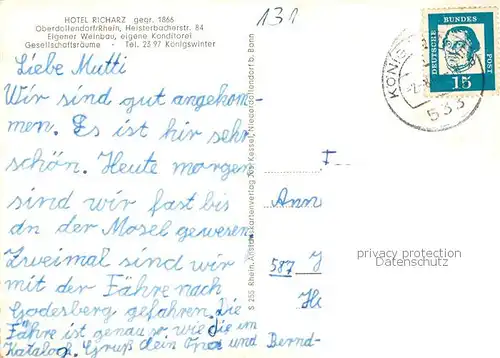 HOTEL RICHARZ gegr. 1866
Oberdollendorf/Rhein, Heisterbacherstr. 84
Eigener Weinbau, eigene Konditorei
Gesellschaftsräume · Tel. 23 97 Königswinter
131
DEUTSCHE BUNDES POST
15
KÖNIGS
533
Liebe Mutti
Wir sind gut angekom-
men. Es ist hir sehr
schön. Heute morgen
sind wir fast bis
an der Mosel gewesen.
Zweimal sind wir
mit der Fähre nach
Godesberg gefahren. Die
Fähre ist genau so, wie die im
Katalog. Gruß dein und Bernd-
S 255 Rhein. Ansichtskartenverlag Jos. Kessel, Niederdollendorf b. Bonn
Ann
587
privacy protection
Datenschutz